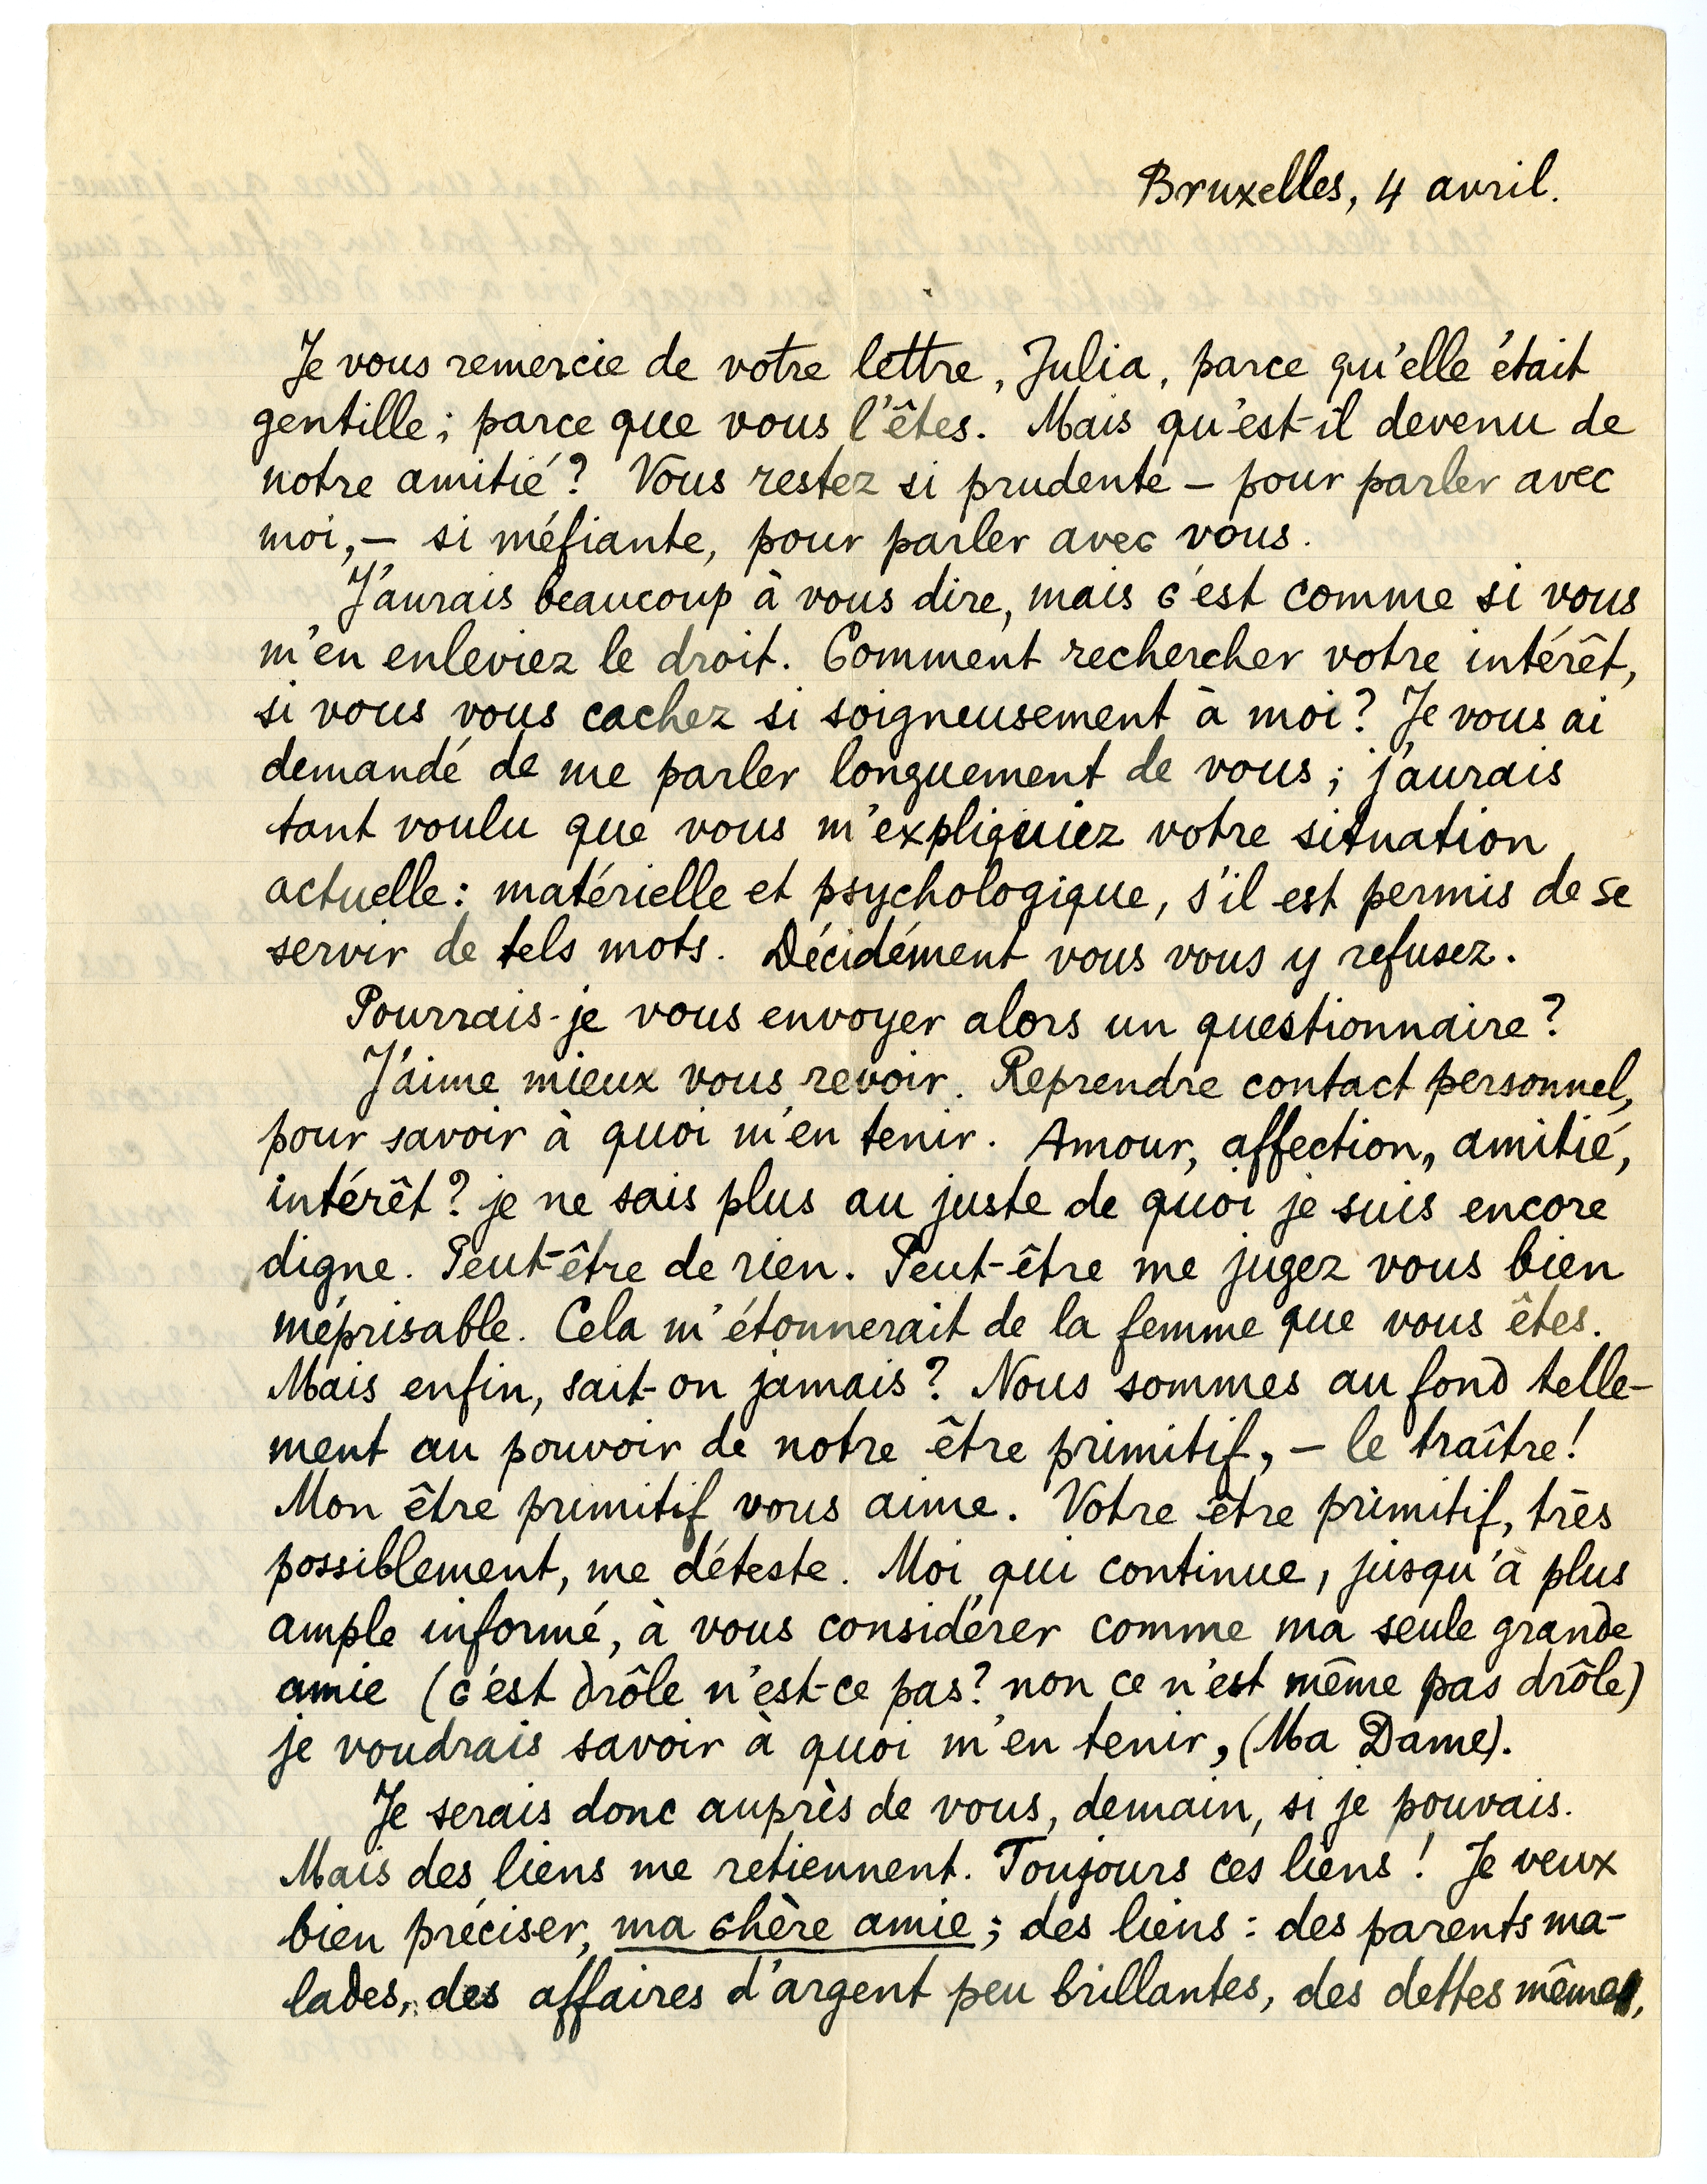 Bruxelles, 4 avril.
Je vous remercie de votre lettre, Julia, parce qu'elle était
gentille; parce que vous l'êtes. Mais qu'est-il devenu de
notre amitié? Vous restez si prudente – pour parler avec
moi, – si méfiante, pour parler avec vous.
J'aurais beaucoup à vous dire, mais c'est comme si vous
m'en enleviez le droit. Comment rechercher votre intérêt,
si vous vous cachez si soigneusement à moi? Je vous ai
demandé de me parler longuement de vous; j'aurais
tant voulu que vous m'expliquiez votre situation
actuelle: matérielle et psychologique, s'il est permis de se
servir de tels mots. Décidément vous vous y refusez.
Pourrais-je vous envoyer alors un questionnaire?
J'aime mieux vous revoir. Reprendre contact personnel,
pour savoir à quoi m'en tenir. Amour, affection, amitié,
intérêt? je ne sais plus au juste de quoi je suis encore
digne. Peut-être de rien. Peut-être me jugez vous bien
méprisable. Cela m'étonnerait de la femme que vous êtes.
Mais enfin, sait-on jamais? Nous sommes au fond telle-
ment au pouvoir de notre être primitif, – le traître!
Mon être primitif vous aime. Votre être primitif, très
possiblement, me déteste. Moi qui continue, jusqu'à plus
ample informé, à vous considérer comme ma seule grande
amie (c'est drôle n'est-ce pas? non ce n'est même pas drôle)
je voudrais savoir à quoi m'en tenir, (Ma Dame).
Je serais donc auprès de vous, demain, si je pouvais.
Mais des liens me retiennent. Toujours ces liens! Je veux
bien préciser, ma chère amie; des liens: des parents ma-
lades, des affaires d'argent peu brillantes, des dettes même,